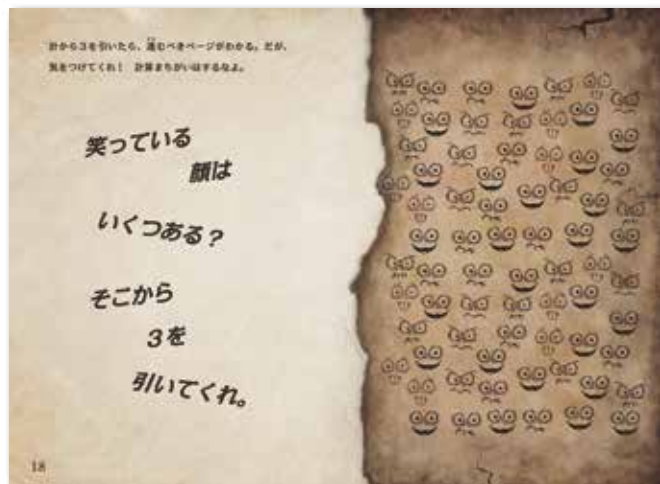 計から3を引いたら、進むべきページがわかる。だが、
気をつけてくれ! 計算まちがいはするなよ。
笑っている
顔は
いくつある?
そこから
3を
引いてくれ。
18